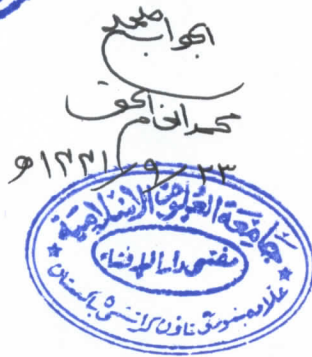 الجواب صحیح
محمد انعام الحق
۲۳/۹/۱۴۴۱ھ
جامعة العلوم الاسلامية
مفتی دارالافتاء
علامہ بنوری تاؤن کراتشی ۵ پاکستان